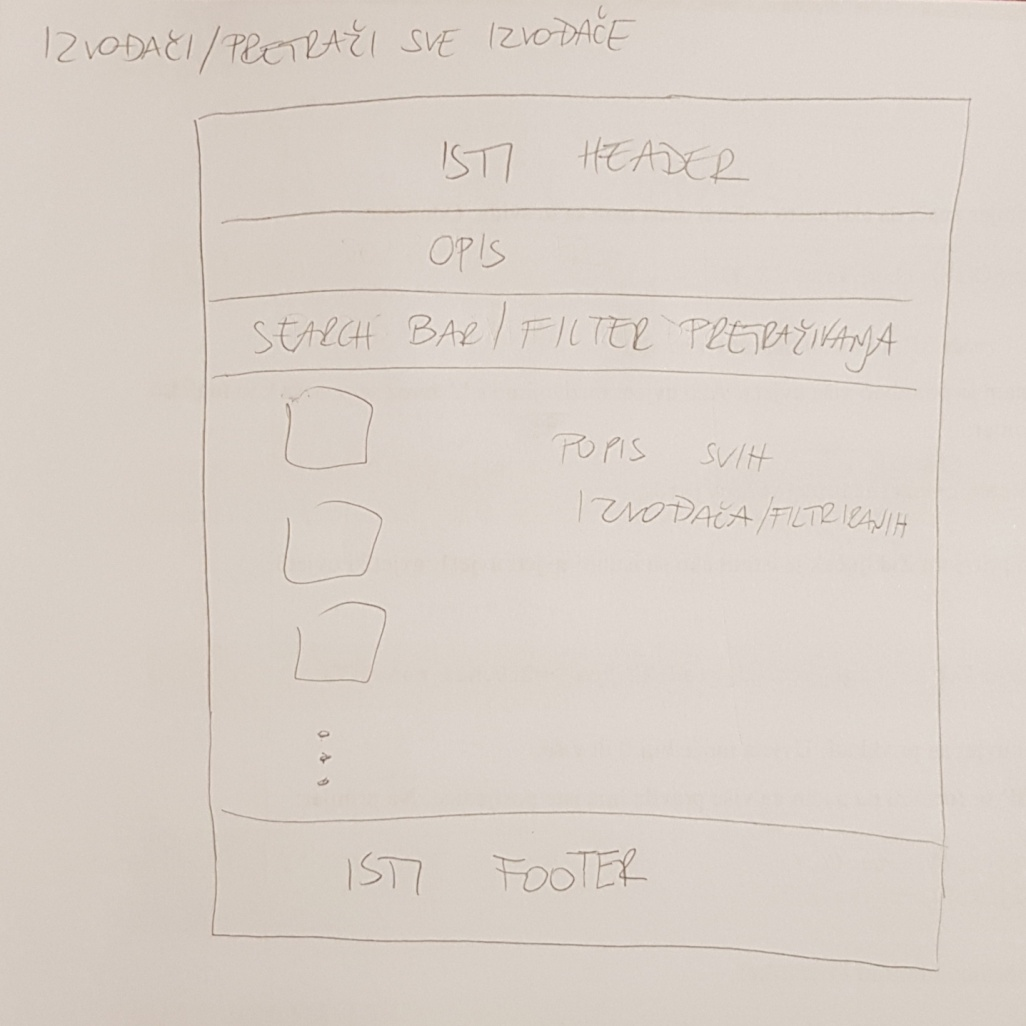 IZVOĐAČI/PRETRAŽI SVE IZVOĐAČE
ISTI HEADER
OPIS
SEARCH BAR/FILTER PRETRAŽIVANJA
POPIS SVIH
IZVOĐAČA/FILTRIRANIH
ISTI FOOTER